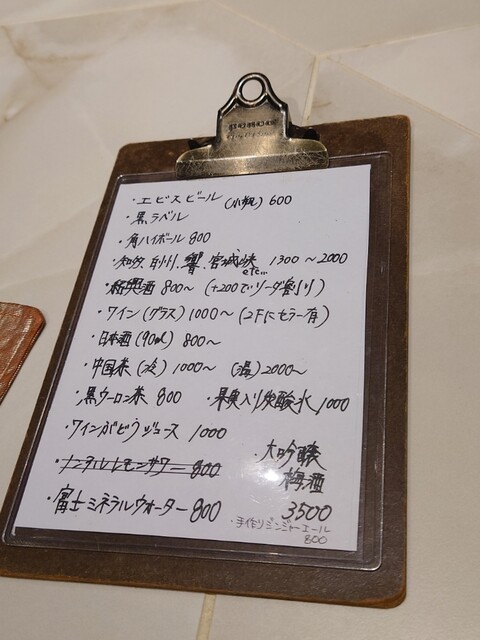 ・エビスビール (小瓶) 600
・黒ラベル
・角ハイボール 800
・知多、白州、響、宮城峡 1300～2000
etc...
・紹興酒 800～ (+200でソーダ割り)
・ワイン (グラス) 1000～ (2Fにセラー有)
・日本酒 (90ml) 800～
・中国茶 (冷) 1000～ (温) 2000～
・黒ウーロン茶 800 ・果実入り炭酸水 1000
・ワインぶどうジュース 1000
・ノンアルレモンサワー 800
・大吟醸
梅酒
3500
・富士ミネラルウォーター 800
・手作りジンジャーエール
800